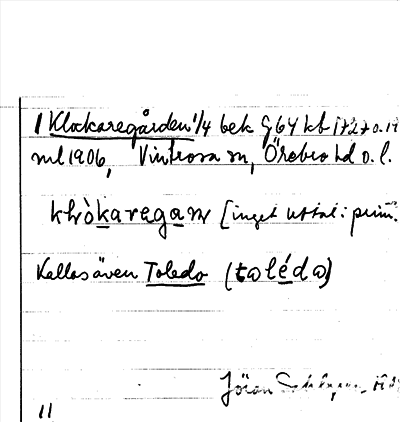 1 Klockaregården 1/4 bek G 64 kb 1727 o. 19
ml 1906, Vintrosa sn, Örebro hd o. l.
khòkaregaɳ [inget uttal: prim.
Kallas även Toledo (taléda)
Jöran
11